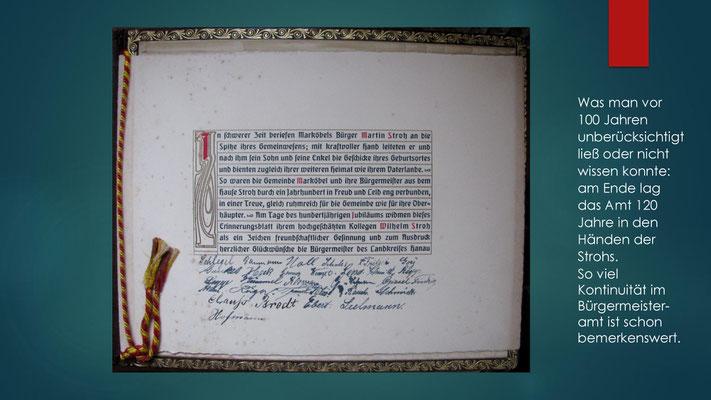 In schwerer Zeit beriefen Marköbels Bürger Martin Stroh an die
Spitze ihres Gemeinwesens; mit kraftvoller Hand leiteten er und
nach ihm sein Sohn und seine Enkel die Geschicke ihres Geburtsortes
und dienten zugleich ihrer weiteren Heimat wie ihrem Vaterlande.
So waren die Gemeinde Marköbel und ihre Bürgermeister aus dem
Hause Stroh durch ein Jahrhundert in Freud und Leid eng verbunden,
in einer Treue, gleich ruhmreich für die Gemeinde wie für ihre Ober-
häupter. Am Tage des hundertjährigen Jubiläums widmen dieses
Erinnerungsblatt ihrem hochgeschätzten Kollegen Wilhelm Stroh
als ein Zeichen freundschaftlicher Gesinnung und zum Ausdruck
herzlicher Glückwünsche die Bürgermeister des Landkreises Hanau
Brodt Ebert
Hofmann
Was man vor
100 Jahren
unberücksichtigt
ließ oder nicht
wissen konnte:
am Ende lag
das Amt 120
Jahre in den
Händen der
Strohs.
So viel
Kontinuität im
Bürgermeister-
amt ist schon
bemerkenswert.